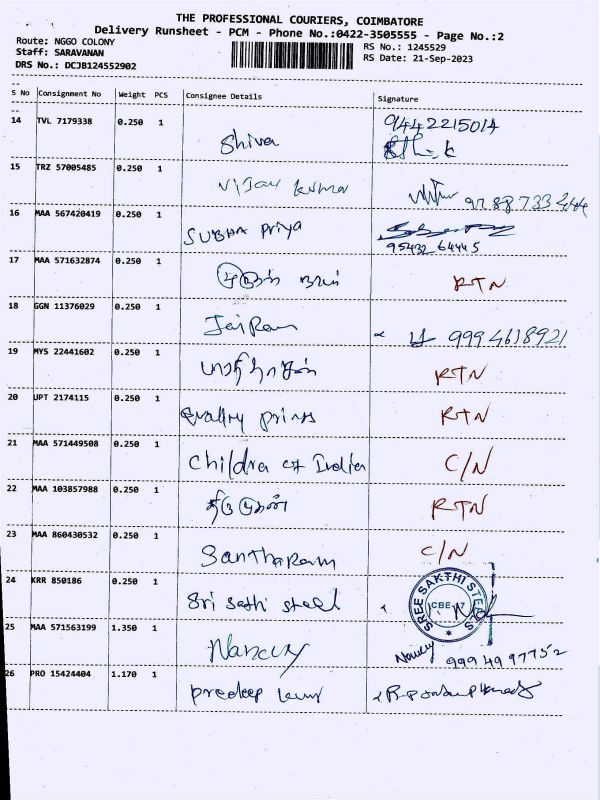 THE PROFESSIONAL COURIERS, COIMBATORE
Delivery Runsheet - PCM - Phone No.:0422-3505555 - Page No.:2
Route: NGGO COLONY RS No.: 1245529
Staff: SARAVANAN RS Date: 21-Sep-2023
DRS No.: DCJB124552902
S No Consignment No Weight PCS Consignee Details Signature
14 TVL 7179338 0.250 1 Shiva 9442215014
15 TRZ 57005485 0.250 1 Vijay kumar
16 MAA 567420419 0.250 1 SUBHA Priya
95432 64445
17 MAA 571632874 0.250 1 RTN
18 GGN 11376029 0.250 1 JaiRam 9994618921
19 MYS 22441602 0.250 1 RTN
20 UPT 2174115 0.250 1 RTN
21 MAA 571449508 0.250 1 Children of India C/N
22 MAA 103857988 0.250 1 RTN
23 MAA 860430532 0.250 1 Santharam C/N
24 KRR 850186 0.250 1 Sri Sathi steel SREE SAKTHI STEELS
CBE-17
25 MAA 571563199 1.350 1 Nancy Nancy 99949 97752
26 PRO 15424404 1.170 1 predeep